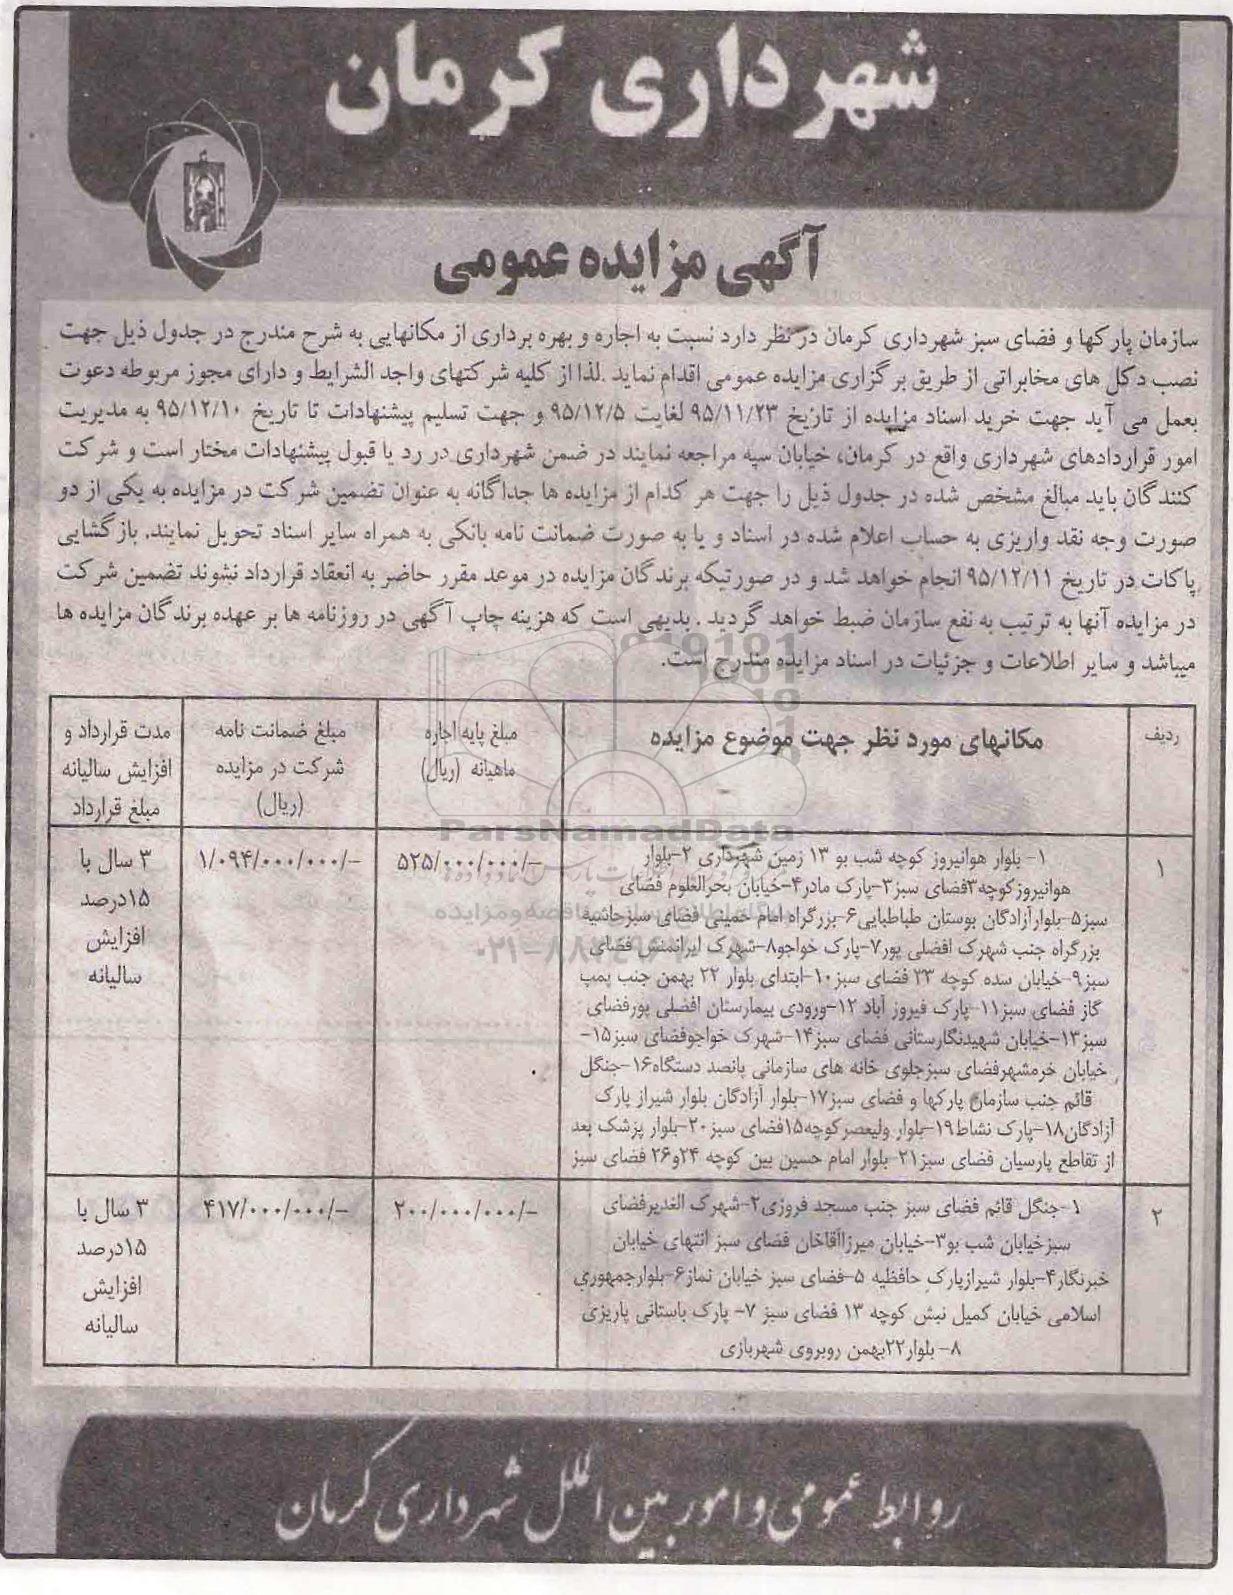 شهرداری کرمان
آگهی مزایده عمومی
سازمان پارکها و فضای سبز شهرداری کرمان در نظر دارد نسبت به اجاره و بهره برداری از مکانهایی به شرح مندرج در جدول ذیل جهت
نصب دکل های مخابراتی از طریق برگزاری مزایده عمومی اقدام نماید .لذا از کلیه شرکتهای واجد الشرایط و دارای مجوز مربوطه دعوت
بعمل می آید جهت خرید اسناد مزایده از تاریخ ۹۵/۱۱/۲۳ لغایت ۹۵/۱۲/۵ و جهت تسلیم پیشنهادات تا تاریخ ۹۵/۱۲/۱۰ به مدیریت
امور قراردادهای شهرداری واقع در کرمان، خیابان سپه مراجعه نمایند در ضمن شهرداری در رد یا قبول پیشنهادات مختار است و شرکت
کنندگان باید مبالغ مشخص شده در جدول ذیل را جهت هر کدام از مزایده ها جداگانه به عنوان تضمین شرکت در مزایده به یکی از دو
صورت وجه نقد واریزی به حساب اعلام شده در اسناد و یا به صورت ضمانت نامه بانکی به همراه سایر اسناد تحویل نمایند. بازگشایی
پاکات در تاریخ ۹۵/۱۲/۱۱ انجام خواهد شد و در صورتیکه برندگان مزایده در موعد مقرر حاضر به انعقاد قرارداد نشوند تضمین شرکت
در مزایده آنها به ترتیب به نفع سازمان ضبط خواهد گردید . بدیهی است که هزینه چاپ آگهی در روزنامه ها بر عهده برندگان مزایده ها
میباشد و سایر اطلاعات و جزئیات در اسناد مزایده مندرج است.
ردیف
مکانهای مورد نظر جهت موضوع مزایده
مبلغ پایه اجاره
ماهیانه (ریال)
مبلغ ضمانت نامه
شرکت در مزایده
(ریال)
مدت قرارداد و
افزایش سالیانه
مبلغ قرارداد
۱
۱- بلوار هوانیروز کوچه شب بو ۱۳ زمین شهرداری ۲-بلوار
هوانیروزکوچه۳فضای سبز۳-پارک مادر۴-خیابان بحرالعلوم فضای
سبز۵-بلوارآزادگان بوستان طباطبایی۶-بزرگراه امام خمینی فضای سبزحاشیه
بزرگراه جنب شهرک افضلی پور۷-پارک خواجو۸-شهرک ایرانمنش فضای
سبز۹-خیابان سده کوچه ۲۳ فضای سبز۱۰-ابتدای بلوار ۲۲ بهمن جنب پمپ
گاز فضای سبز۱۱-پارک فیروز آباد ۱۲-ورودی بیمارستان افضلی پورفضای
سبز۱۳-خیابان شهیدنگارستانی فضای سبز۱۴-شهرک خواجوفضای سبز۱۵-
خیابان خرمشهرفضای سبزجلوی خانه های سازمانی پانصد دستگاه۱۶-جنگل
قائم جنب سازمان پارکها و فضای سبز۱۷-بلوار آزادگان بلوار شیراز پارک
آزادگان۱۸-پارک نشاط۱۹-بلوار ولیعصرکوچه۱۵فضای سبز۲۰-بلوار پزشک بعد
از تقاطع پارسیان فضای سبز۲۱-بلوار امام حسین بین کوچه ۲۴و۲۶ فضای سبز
۵۲۵/۰۰۰/۰۰۰/-
۱/۰۹۴/۰۰۰/۰۰۰/-
۳ سال با
۱۵درصد
افزایش
سالیانه
۲
۱-جنگل قائم فضای سبز جنب مسجد فروزی۲-شهرک الغدیرفضای
سبزخیابان شب بو۳-خیابان میرزاآقاخان فضای سبز انتهای خیابان
خبرنگار۴-بلوار شیرازپارک حافظیه ۵-فضای سبز خیابان نماز۶-بلوارجمهوری
اسلامی خیابان کمیل نبش کوچه ۱۳ فضای سبز ۷- پارک باستانی پاریزی
۸- بلوار۲۲بهمن روبروی شهربازی
۲۰۰/۰۰۰/۰۰۰/-
۴۱۷/۰۰۰/۰۰۰/-
۳ سال با
۱۵درصد
افزایش
سالیانه
ParsNamadData
روابط عمومی و امور بین الملل شهرداری کرمان